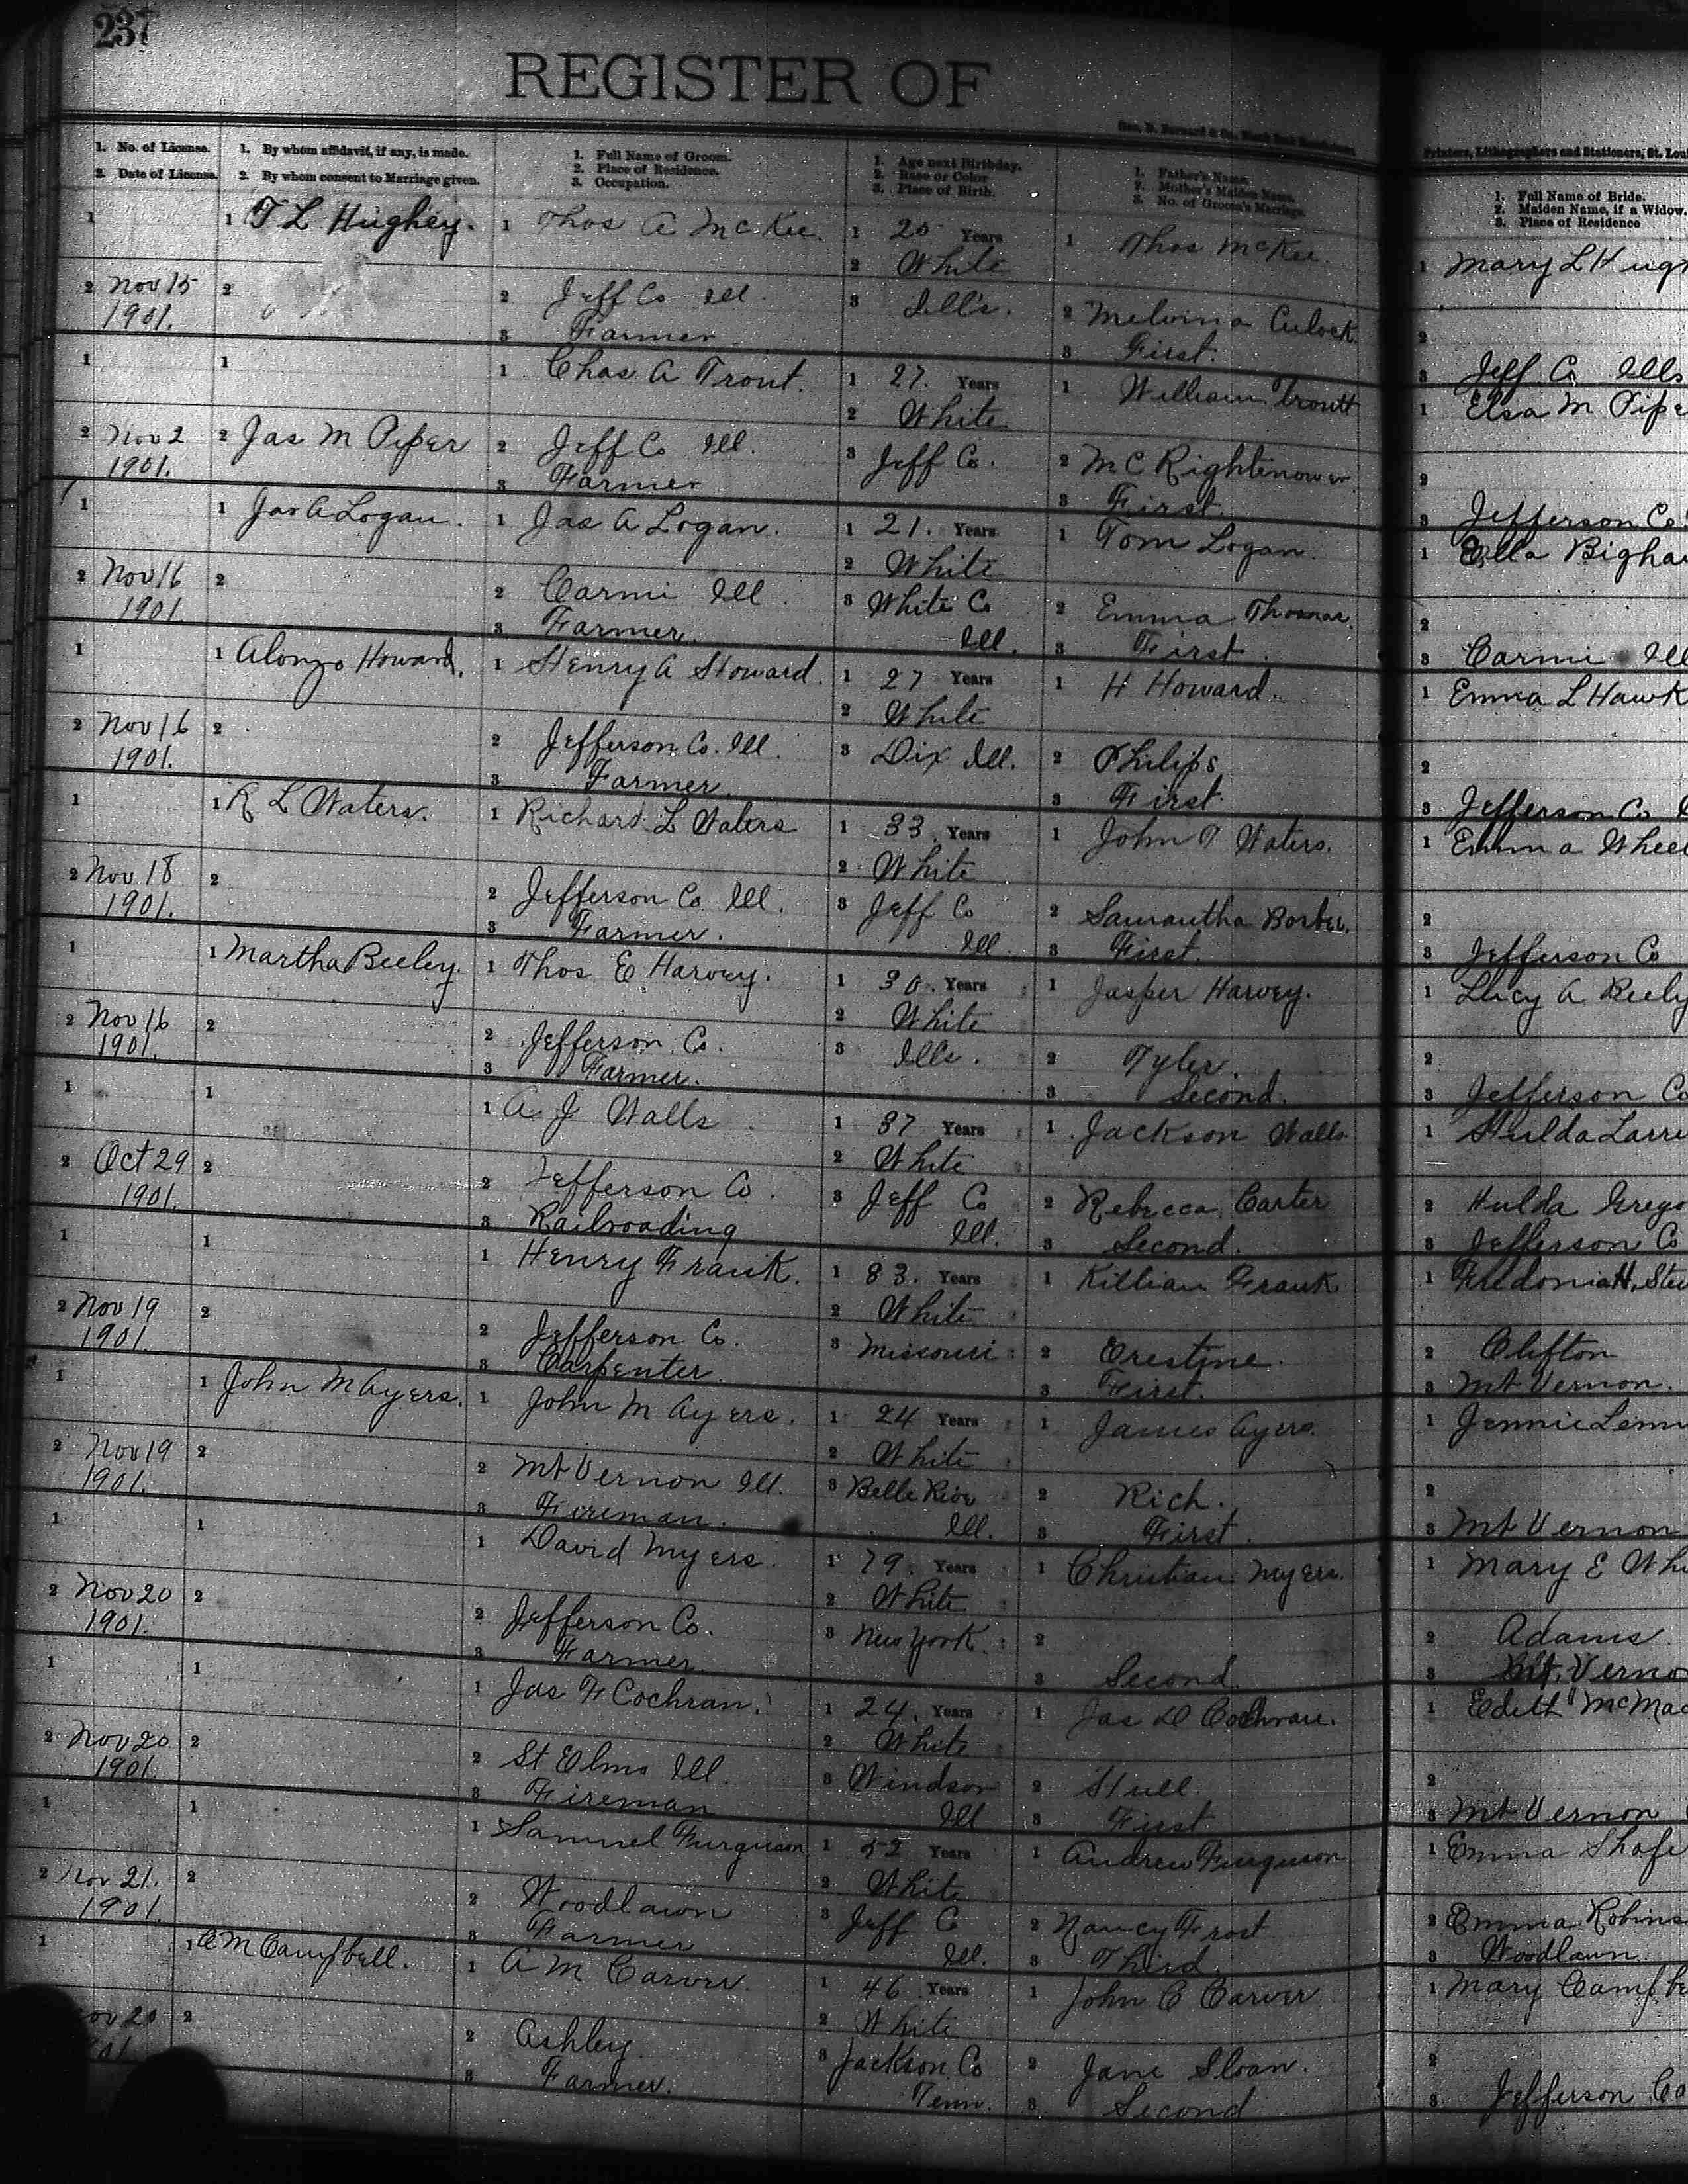 237
REGISTER OF
1. No. of License.
2. Date of License.
1. By whom affidavit, if any, is made.
2. By whom consent to Marriage given.
1. Full Name of Groom.
2. Place of Residence.
3. Occupation.
1. Age next Birthday.
2. Race or Color
3. Place of Birth.
1. Father's Name.
2. Mother's Maiden Name.
3. No. of Groom's Marriage.
Printers, Lithographers and Stationers, St. Lou
1. Full Name of Bride.
2. Maiden Name, if a Widow.
3. Place of Residence
1
2 Nov 15
1901.
1 T L Hughey.
2
1 Thos A McKee.
2 Jeff Co Ill.
3 Farmer
1 20 Years
2 White
3 Ill's.
1 Thos McKee.
2 Melvina Culock
3 First.
1 Mary L Hugh
2
3 Jeff Co Ills
1
2 Nov 2
1901.
1
2 Jas M Piper
1 Chas A Trout.
2 Jeff Co Ill.
3 Farmer
1 27. Years
2 White
3 Jeff Co.
1 William Troutt
2 M C Rightenower
3 First.
1 Elsa M Pipe
2
3 Jefferson Co
1
2 Nov 16
1901.
1 Jas A Logan.
2
1 Jas A Logan.
2 Carmi Ill.
3 Farmer.
1 21. Years
2 White
3 White Co
Ill.
1 Tom Logan.
2 Emma Thomas.
3 First.
1 Ella Bigha
2
3 Carmi Ill
1
2 Nov 16
1901.
1 Alonzo Howard.
2
1 Henry A Howard.
2 Jefferson Co. Ill.
3 Farmer.
1 27 Years
2 White
3 Dix Ill.
1 H Howard.
2 Philips
3 First.
1 Emma L Hawk
2
3 Jefferson Co
1
2 Nov 18
1901.
1 R L Waters.
2
1 Richard L Waters
2 Jefferson Co Ill.
3 Farmer.
1 33. Years
2 White
3 Jeff Co
Ill.
1 John T Waters.
2 Samantha
3 First.
1 Emma Wheel
2
3 Jefferson Co
1
2 Nov 16
1901.
1 Martha Beeley.
2
1 Thos E Harvey.
2 Jefferson Co.
3 Farmer.
1 30. Years
2 White
3 Ills.
1 Jasper Harvey.
2 Tyler.
3 Second.
1 Lucy A Beely
2
3 Jefferson Co
1
2 Oct 29
1901.
1
2
1 A J Walls
2 Jefferson Co.
3 Railroading
1 37 Years
2 White
3 Jeff Co
Ill.
1 Jackson Walls
2 Rebecca Carter
3 Second.
1 Hulda Larri
2 Hulda Grego
3 Jefferson Co
1
2 Nov 19
1901.
1
2
1 Henry Frank.
2 Jefferson Co.
3 Carpenter.
1 83. Years
2 White
3 Missouri
1 Killian Frank
2 Crestine.
3 First.
1 Fredonia H. Ste
2 Clifton
3 Mt Vernon.
1
2 Nov 19
1901.
1 John M Ayers.
2
1 John M Ayers.
2 Mt Vernon Ill.
3 Fireman.
1 24 Years
2 White
3 Belle Rive
Ill.
1 James Ayers.
2 Rich.
3 First.
1 Jennie Lem
2
3 Mt Vernon
1
2 Nov 20
1901.
1
2
1 David Myers.
2 Jefferson Co.
3 Farmer.
1 79. Years
2 White
3 New York.
1 Christian Myers.
2
3 Second.
1 Mary E Whi
2 Adams
3 Mt. Verno
1
2 Nov 20
1901.
1
2
1 Jas F Cochran.
2 St Elmo Ill.
3 Fireman
1 24. Years
2 White
3 Windsor
Ill
1 Jas D Cochran.
2 Hull.
3 First
1 Edith McMac
2
3 Mt Vernon
1
2 Nov 21.
1901.
1
2
1 Samuel Furguson
2 Woodlawn
3 Farmer
1 52 Years
2 White
3 Jeff C
Ill.
1 Andrew Furguson
2 Nancy Frost
3 Third.
1 Emma Shafe
2 Emma Robins
3 Woodlawn.
1
ov 20
01
1 C M Campbell.
2
1 A M Carver.
2 Ashley.
3 Farmer.
1 46 Years
2 White
3 Jackson Co
Tenn.
1 John C Carver
2 Jane Sloan.
3 Second
1 Mary Campbe
2
3 Jefferson Co